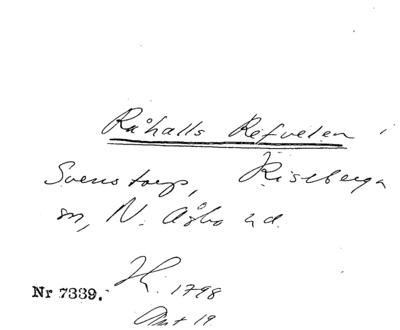 Råhalls Refvelen i
Svenstorp, Riseberga
sn, N. Åsbo hd.
1798
Nr 7339.
Akt 19